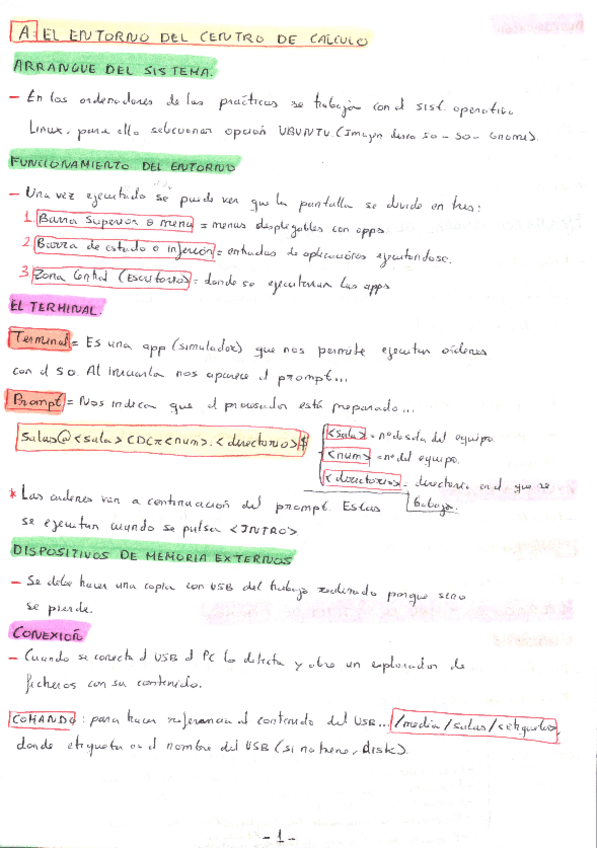 A: EL ENTORNO DEL CENTRO DE CALCULO
ARRANQUE DEL SISTEMA.
- En los ordenadores de las prácticas se trabaja con el sist. operativo
Linux, para ello seleccionar opción UBUNTU. (Imagen disco so - so - Gnome).
FUNCIONAMIENTO DEL ENTORNO
- Una vez ejecutado se puede ver que la pantalla se divide en tres:
1. Barra superior o menu = menus desplegables con apps.
2. Barra de estado o inferior = entradas de aplicaciones ejecutandose.
3. Zona Central (Escritorio) = donde se ejecutaran las apps
EL TERMINAL.
Terminal = Es una app (simulador) que nos permite ejecutar ordenes
con el SO. Al iniciarla nos aparece el prompt...
Prompt = Nos indica que el procesador está preparado...
salas@<sala>CDC<num>:<directorio>$
<sala> = nº de sala del equipo.
<num> = nº del equipo.
<directorio> = directorio en el que se
trabaja.
* Las ordenes van a continuación del prompt. Estas
se ejecutan cuando se pulsa <INTRO>.
DISPOSITIVOS DE MEMORIA EXTERNOS
- Se debe hacer una copia con USB del trabajo realizado porque sino
se pierde.
CONEXIÓN
- Cuando se conecta el USB el PC lo detecta y abre un explorador de
ficheros con su contenido.
COMANDO: para hacer referencia al contenido del USB... /media/salas/<etiqueta>,
donde etiqueta es el nombre del USB (si no tiene, Disk).
- 1 -